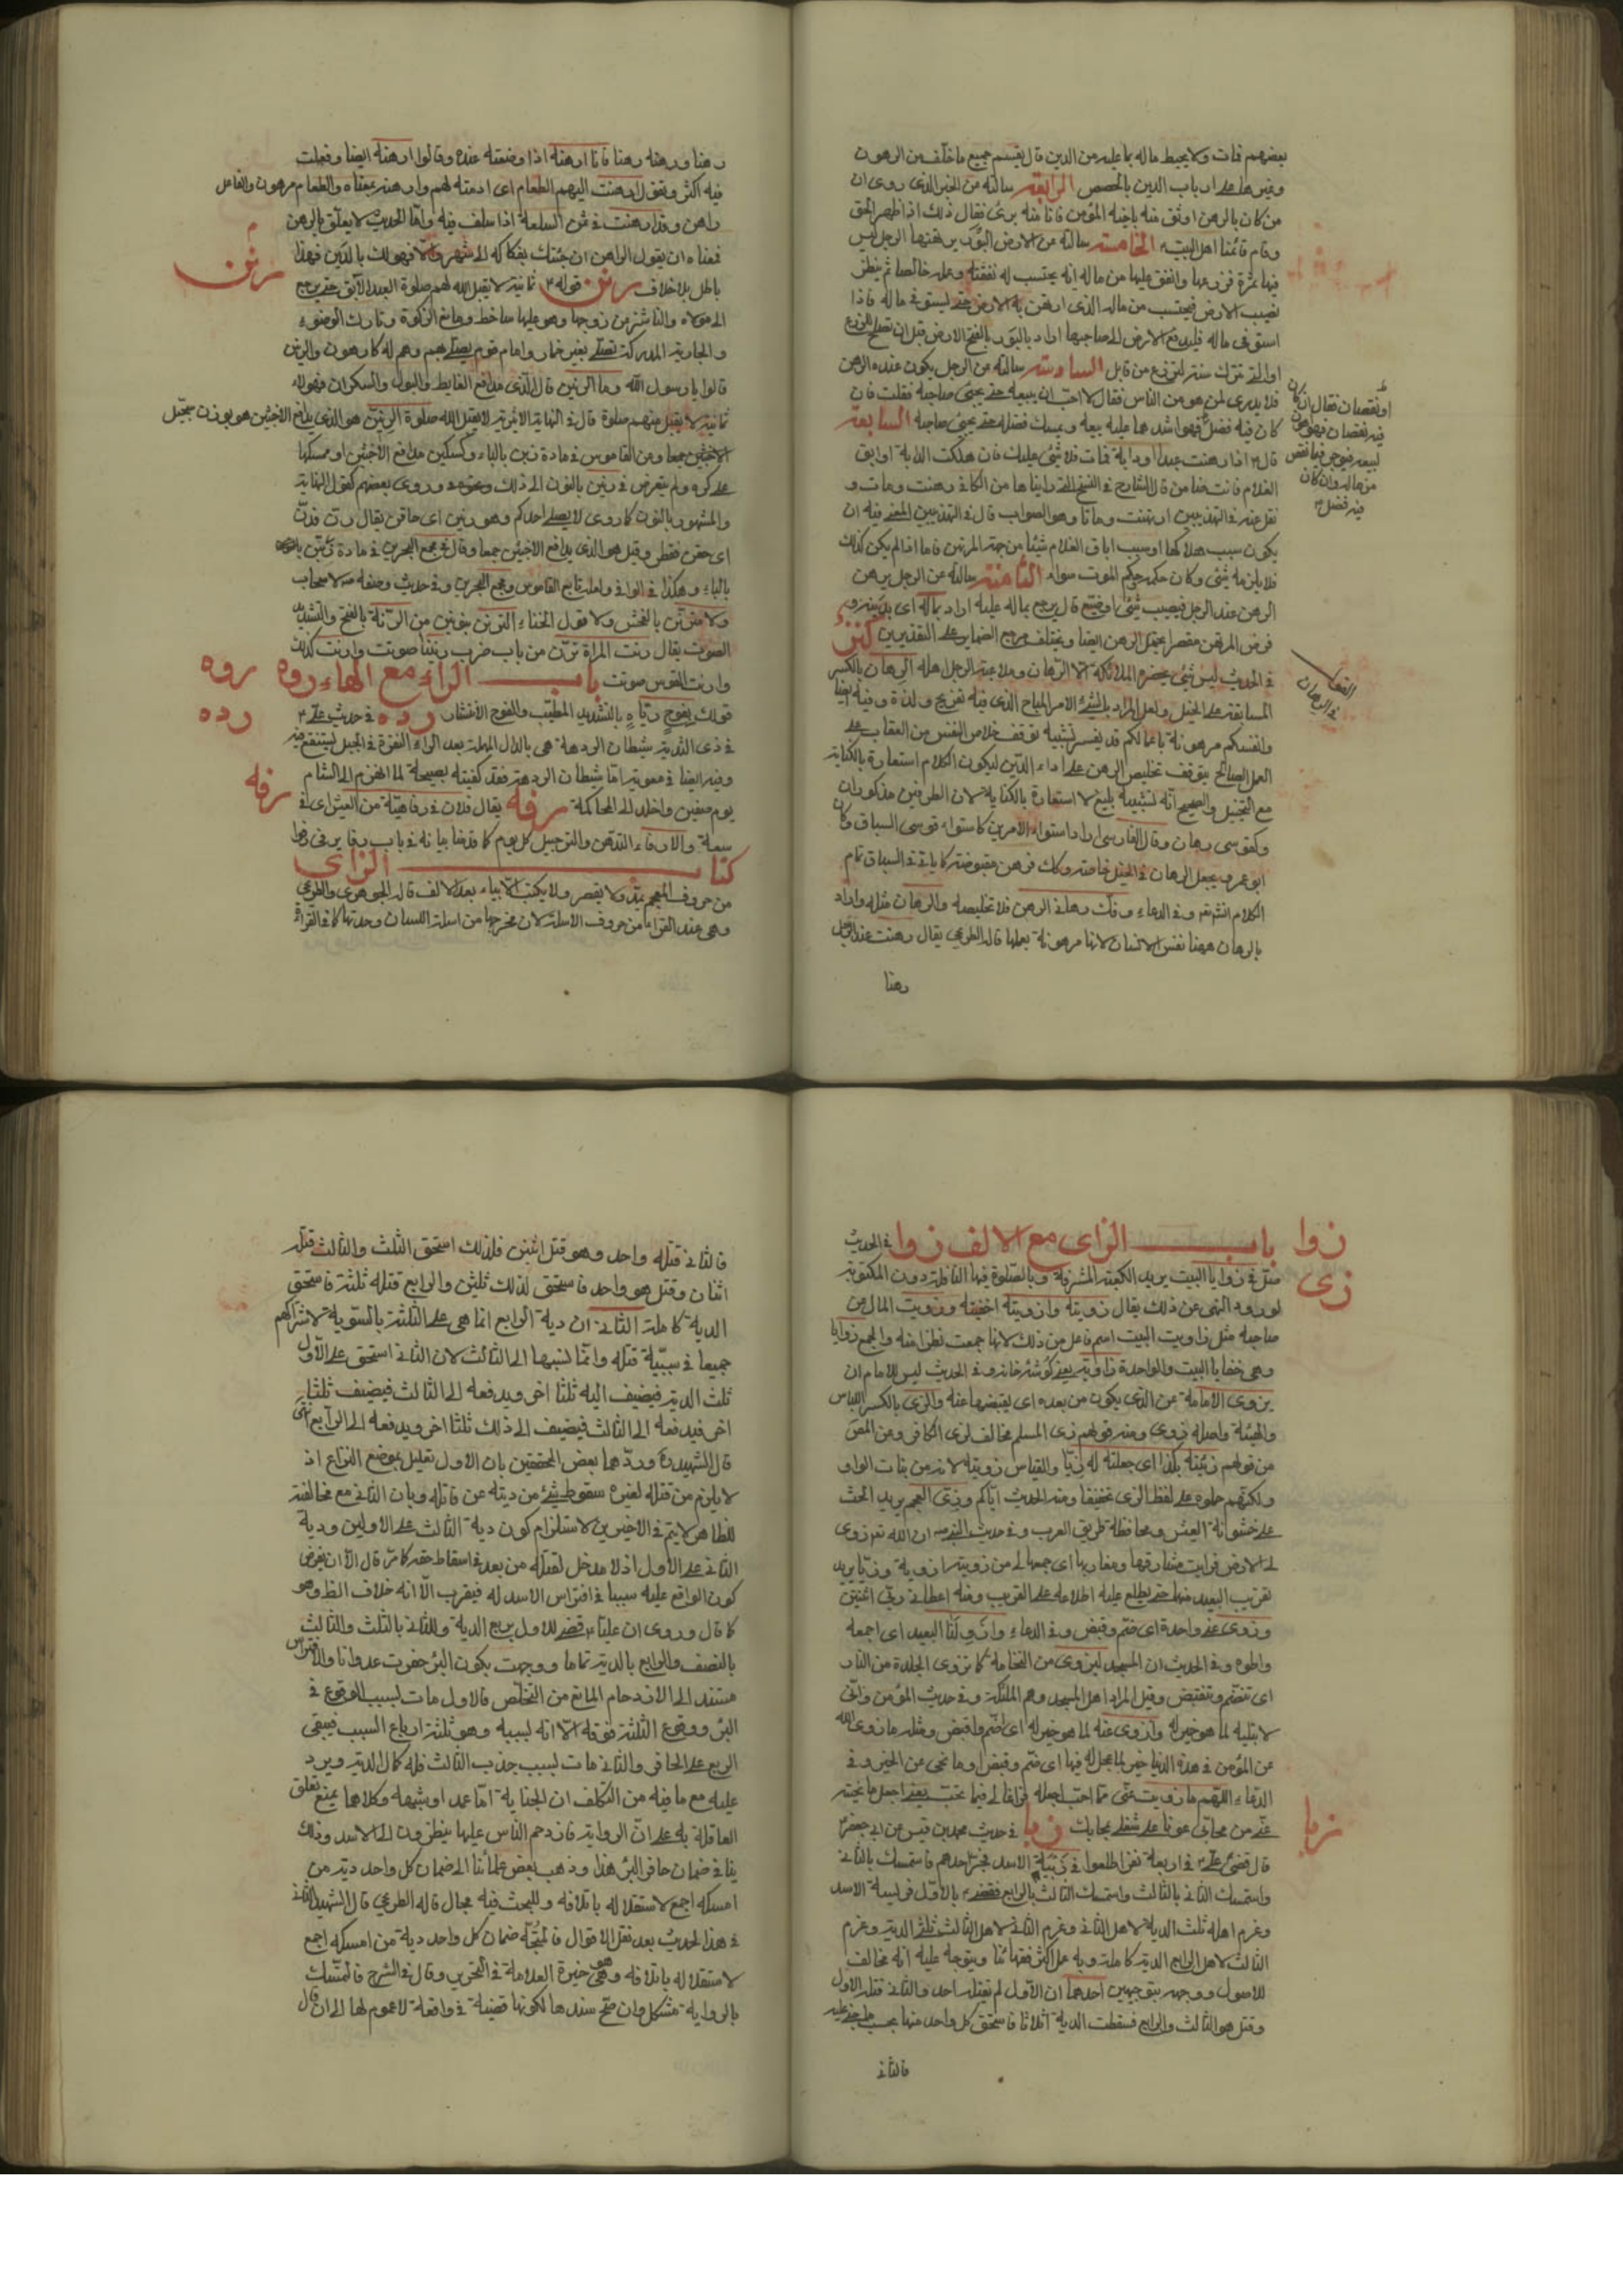 بعضهم فمات ولا يحيط ماله بما عليه من الدين قال يقسم جميع ما خلف من الرهون
وغيرها على ارباب الدين بالحصص الرابعة سالته عن الخبر الذى روى ان
من كان بالرهن اوثق منه باخيه المؤمن فانا منه برئ فقال ذلك اذا ظهر الحق
وقام قائمنا اهل البيت الخامسة سالته عن الارض البور يرتهنها الرجل ليس
فيها ثمرة فزرعها وانفق عليها من ماله انه يحتسب له نفقته وعمله خالصا ثم ينظر
نصيب الارض فيحتسب من ماله الذى ارتهن به الارض حتى يستوفى ماله فاذا
استوفى ماله فليدفع الارض الى صاحبها اراد بالبور بالفتح الارض قبل ان تصلح للزرع
او التى تترك سنة لتزرع من قابل السادسة سالته عن الرجل يكون عنده الرهن
فلا يدرى لمن هو من الناس فقال لا احب ان يبيعه حتى يجئ صاحبه فقلت فان
كان فيه فضل فهو اشدهما عليه يبيعه ويمسك فضله حتى يجئ صاحبه السابعة
قال اذا رهنت عبدا او دابة فمات فلا شئ عليك فان هلكت الدابة او ابق
الغلام فانت ضامن قال الشارح فى النسخ التى رايناها من الكافى رهنت ومات و
نقل عنه فى التهذيبين ارتهنت وماتا وهو الصواب قال فى التهذيبين المعنى فيه ان
يكون سبب هلاكها او سبب اباق الغلام شيئا من جهة المرتهن فاما اذا لم يكن كذلك
فلا يلزمه شئ وكان حكمه حكم الموت سواء الثامنة سالته عن الرجل يرهن
الرهن عند الرجل فيصيبه شئ او ضيع قال يرجع بماله عليه اراد بماله اى بدينه و
فرض المرتهن مقصرا يحتمل الرهن ايضا ويختلف مرجع الضماير على التقديرين كنز
فى الحديث ليس شئ يحضره الملائكة الا الرهان وملاعبة الرجل اهله الرهان بالكسر
المسابقة على الخيل ولعل المراد بالشئ الامر المباح الذى فيه تفريح ولذة وفيه ايضا
وانفسكم مرهونة باعمالكم قد يفسر تشبيه توقف خلاص النفس من العقاب على
العمل الصالح بتوقف تخليص الرهن على اداء الدين ليكون الكلام استعارة بالكناية
مع التخييل والصحيح انه تشبيه بليغ لا استعارة بالكناية لان الطرفين مذكوران
وكفرسى رهان وقال الفارسى اراد استواء الامرين كاستواء فرسى السباق وكان
ابو عمرو يجعل الرهان فى الخيل خاصة وكذا فرهن مقبوضة كما ياتى فى السباق تمام
الكلام انشاء الله وفى الدعاء وفك رهانى الرهن فلا تخليصه والرهان مثله واراد
بالرهان ههنا نفس الانسان لانها مرهونة بعملها قاله الطريحى يقال رهنت عند الرجل
رهنا
او نقصان فقال ان كان
فيه نقصان فهو اهون
لبيعه فيوجر فيما نقص
من ماله وان كان
فيه فضل
رهنا ورهنه رهنا فانا ارهنه اذا وضعته عنده وقالوا ارهنته ايضا وفعلت
فيه اكثر وتقول ارهنت اليهم الطعام اى ادمته لهم وارهنته بمعناه والطعام مرهون والفاعل
راهن وقد ارهنت فى ثمن السلعة اذا سلف فيه واما الحديث لا يعلق بالرهن
فمعناه ان يقول الراهن ان جئتك بفكاكه الى شهر والا فهو لك بالدين فهذا
باطل بلا خلاف رنن قوله ثمانية لا يقبل الله لهم صلوة العبد الآبق حتى يرجع
رنن
الى مولاه والناشز من زوجها وهو عليها ساخط ومانع الزكوة وتارك الوضوء
والجارية المدركة تصلى بغير خمار وامام قوم يصلى بهم وهم له كارهون والزنين
قالوا يا رسول الله وما الزنين قال الذى يدافع الغايط والبول والسكران فهؤلاء
ثمانية لا يقبل منهم صلوة قال فى النهاية الاثيرية لا يقبل الله صلوة الزنين هو الذى يدافع الاخبثين هو بوزن سجيل
الاخبثين جمعا ومن القاموس فى مادة زبن بالباء وكسكين مدافع الاخبثين او ممسكها
على كره ولم يتعرض فى زنين بالنون الى ذلك وروى بعضهم كقول النهاية
والمشهور بالنون كما روى لا يصلى احدكم وهو زنين اى حاقن يقال زن فذن
اى حقن فقطر وقيل هو الذى يدافع الاخبثين جمعا وقال فى مجمع البحرين فى مادة زبن
بالباء وهكذا فى الوافى ولعله تابع القاموس ومجمع البحرين وفى حديث وصفه لا سخاب
ولا مترنن بالفحش ولا قول الخناء الترنن بنونين من الرنة بالفتح والتشديد
الصوت يقال رنت المراة ترن من باب ضرب رنينا صوتت وارنت كذلك
وارنت القوس صوتت باب الراء مع الهاء روه
روه
قولك بفوج رياه بالتشديد المطيب والفوج الانتشار رده فى حديث على
رده
فى ذى الثدية شيطان الردهة هى بالدال المهملة بعد الراء النقرة فى الجبل يستنقع فيه
وفيه ايضا فى معوية اما شيطان الردهة فقد كفيته بصيحة لما انهزم الى الشام
يوم صفين واخلد الى المحاكمة رفه يقال فلان فى رفاهية من العيش اى فى
رفه
سعة والارفاء التدهن والترجيل كل يوم كما قدمنا بيانه فى باب رفا
كتاب الزاى
من حروف المعجم يمد ولا يقصر ولا يكتب الا بياء بعد الالف قاله الجوهرى والطريحى
وهى عند القراء من حروف الاسلة لان مخرجها من اسلة اللسان وحدتها كما فى القراءة
زوا باب الزاى مع الالف زوا فى الحديث
زى
صل فى زوايا البيت يريد الكعبة المشرفة وبالصلوة فيها النافلة دون المكتوبة
لورود النهى عن ذلك يقال زويته وازويته اخفيته وزويت المال عن
صاحبه مثل زاويت البيت اسم فاعل من ذلك لانها جمعت قطرا منه والجمع زوايا
وهى خفايا البيت والواحدة زاوية يعنى گوشه خانه وفى الحديث ليس للامام ان
يزوى الامامة عن الذى يكون من بعده اى يقبضها عنه والزى بالكسر اللباس
والهيئة واصله زوى ومنه قولهم زى المسلم مخالف لزى الكافر وعن المص
من قولهم زييته بكذا اى جعلته له زيا والقياس زويته لانه من بنات الواو
ولكنهم حملوه على لفظ الزى تخفيفا ومنه الحديث اياكم وزى العجم يريد الحث
على خشونة العيش ومحافظة طريق العرب وفى حديث النبى ان الله تعالى زوى
لى الارض فرايت مشارقها ومغاربها اى جمعها لى من زويته ازويه وزيا يريد
تقريب البعيد منها حتى يطلع عليه اطلاعه على القريب ومنه اعطانى ربى اثنتين
وزوى عنى واحدة اى ضم وقبض وفى الدعاء وازو لنا البعيد اى اجمعه
واطوه وفى الحديث ان المسجد لينزوى من النخامة كما تنزوى الجلدة من النار
اى تنضم وتنقبض وقيل المراد اهل المسجد وهم الملئكة وفى حديث المؤمن وانى
لابتليه لما هو خير له وازوى عنه لما هو خير له اى اضم واقبض ومثله ما زوى الله
عن المؤمن فى هذه الدنيا خير لما عجل له فيها اى ضم وقبض او ما نحى من الخير وفى
الدعاء اللهم ما زويت عنى مما احب فاجعله فراغا لى فيما تحب يعنى اجعل ما نحيته
عنى من محابى عونا على شغلى بمحابك زبا فى حديث محمد بن قيس عن ابى جعفر
زبا
قال قضى على فى اربعة نفر اطلعوا فى زبية الاسد فخر احدهم فاستمسك بالثانى
واستمسك الثانى بالثالث واستمسك الثالث بالرابع فقضى بالاول فريسة الاسد
وغرم اهله ثلث الدية لاهل الثانى وغرم الثانى لاهل الثالث ثلثى الدية وغرم
الثالث لاهل الرابع الدية كاملة وبه عمل اكثر فقهائنا ويتوجه عليه انه مخالف
للاصول ووجه بتوجيهين احدهما ان الاول لم يقتله احد والثانى قتله الاول
وقتل هو الثالث والرابع فسقطت الدية اثلاثا فاستحق كل واحد منها بحسب ما جنى عليه
فالثانى
فالثانى قتله واحد وهو قتل اثنين فلذلك استحق الثلث والثالث قتله
اثنان وقتل هو واحد فاستحق لذلك ثلثين والرابع قتله ثلثة فاستحق
الدية كاملة الثانى ان دية الرابع انما هى على الثلثة بالسوية لاشتراكهم
جميعا فى سببية قتله وانما نسبها الى الثالث لان الثانى استحق على الاول
ثلث الدية فيضيف اليه ثلثا اخر ويدفعه الى الثالث فيضيف ثلثا
اخر فيدفعه الى الثالث فيضيف الى ذلك ثلثا اخر ويدفعه الى الرابع انتهى
قال الشهيد وردهما بعض المحققين بان الاول تعليل بموضع النزاع اذ
لا يلزم من قتله لغيره سقوط شئ من ديته عن قاتله وبان الثانى مع مخالفته
للظاهر لا يتم فى الاخيرين لاستلزام كون دية الثالث على الاولين ودية
الثانى على الاول اذ لا مدخل لقتله من بعده فى اسقاط حقه كما مر قال الا ان يفرض
كون الواقع عليه سببا فى افتراس الاسد له فيقرب الا انه خلاف الظ وهو
كما قال وروى ان عليا قضى للاول بربع الدية وللثانى بالثلث والثالث
بالنصف والرابع بالدية تماما ووجهت بكون البئر حفرت عدوانا والافتراس
مستند الى الازدحام المانع من التخلص فالاول مات بسبب الوقوع فى
البئر ووقوع الثلثة فوقه الا انه بسببه وهو ثلثة ارباع السبب فيبقى
الربع على الحافر والثانى مات بسبب جذب الثالث فله كمال الدية ويرد
عليه مع ما فيه من التكلف ان الجناية اما عمد او شبهه وكلاهما يمنع تعلق
العاقلة به على ان الرواية فازدحم الناس عليها ينظرون الى الاسد وذلك
ينافى ضمان حافر البئر هذا وذهب بعض علمائنا الى ضمان كل واحد دية من
امسكه اجمع لاستقلاله باتلافه وللبحث فيه مجال قاله الطريحى قال الشهيد الثانى
فى هذا الحديث بعد نقل الاقوال فالمتجه ضمان كل واحد دية من امسكه اجمع
لاستقلاله باتلافه وهو خيرة العلامة فى التحرير وقال فى الشرح فالتمسك
بالرواية مشكل وان صح سندها لكونها قضية فى واقعة لا عموم لها الى ان قال